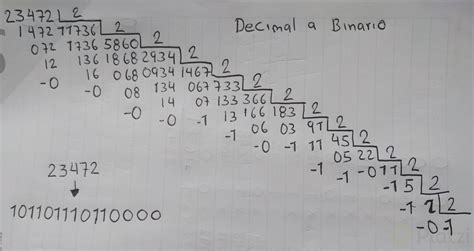 Decimal a Binario
23472 2
1472 11736 2
072 1736 5868 2
12 136 1868 2934 2
-0 16 068 0934 1467 2
-0 08 134 067 733 2
-0 14 07 133 366 2
-0 -1 13 166 183 2
-1 06 03 91 2
-0 -1 11 45 2
-1 05 22 2
-1 -0 11 2
-1 5 2
-1 2 2
-0 -1
23472
↓
101101110110000